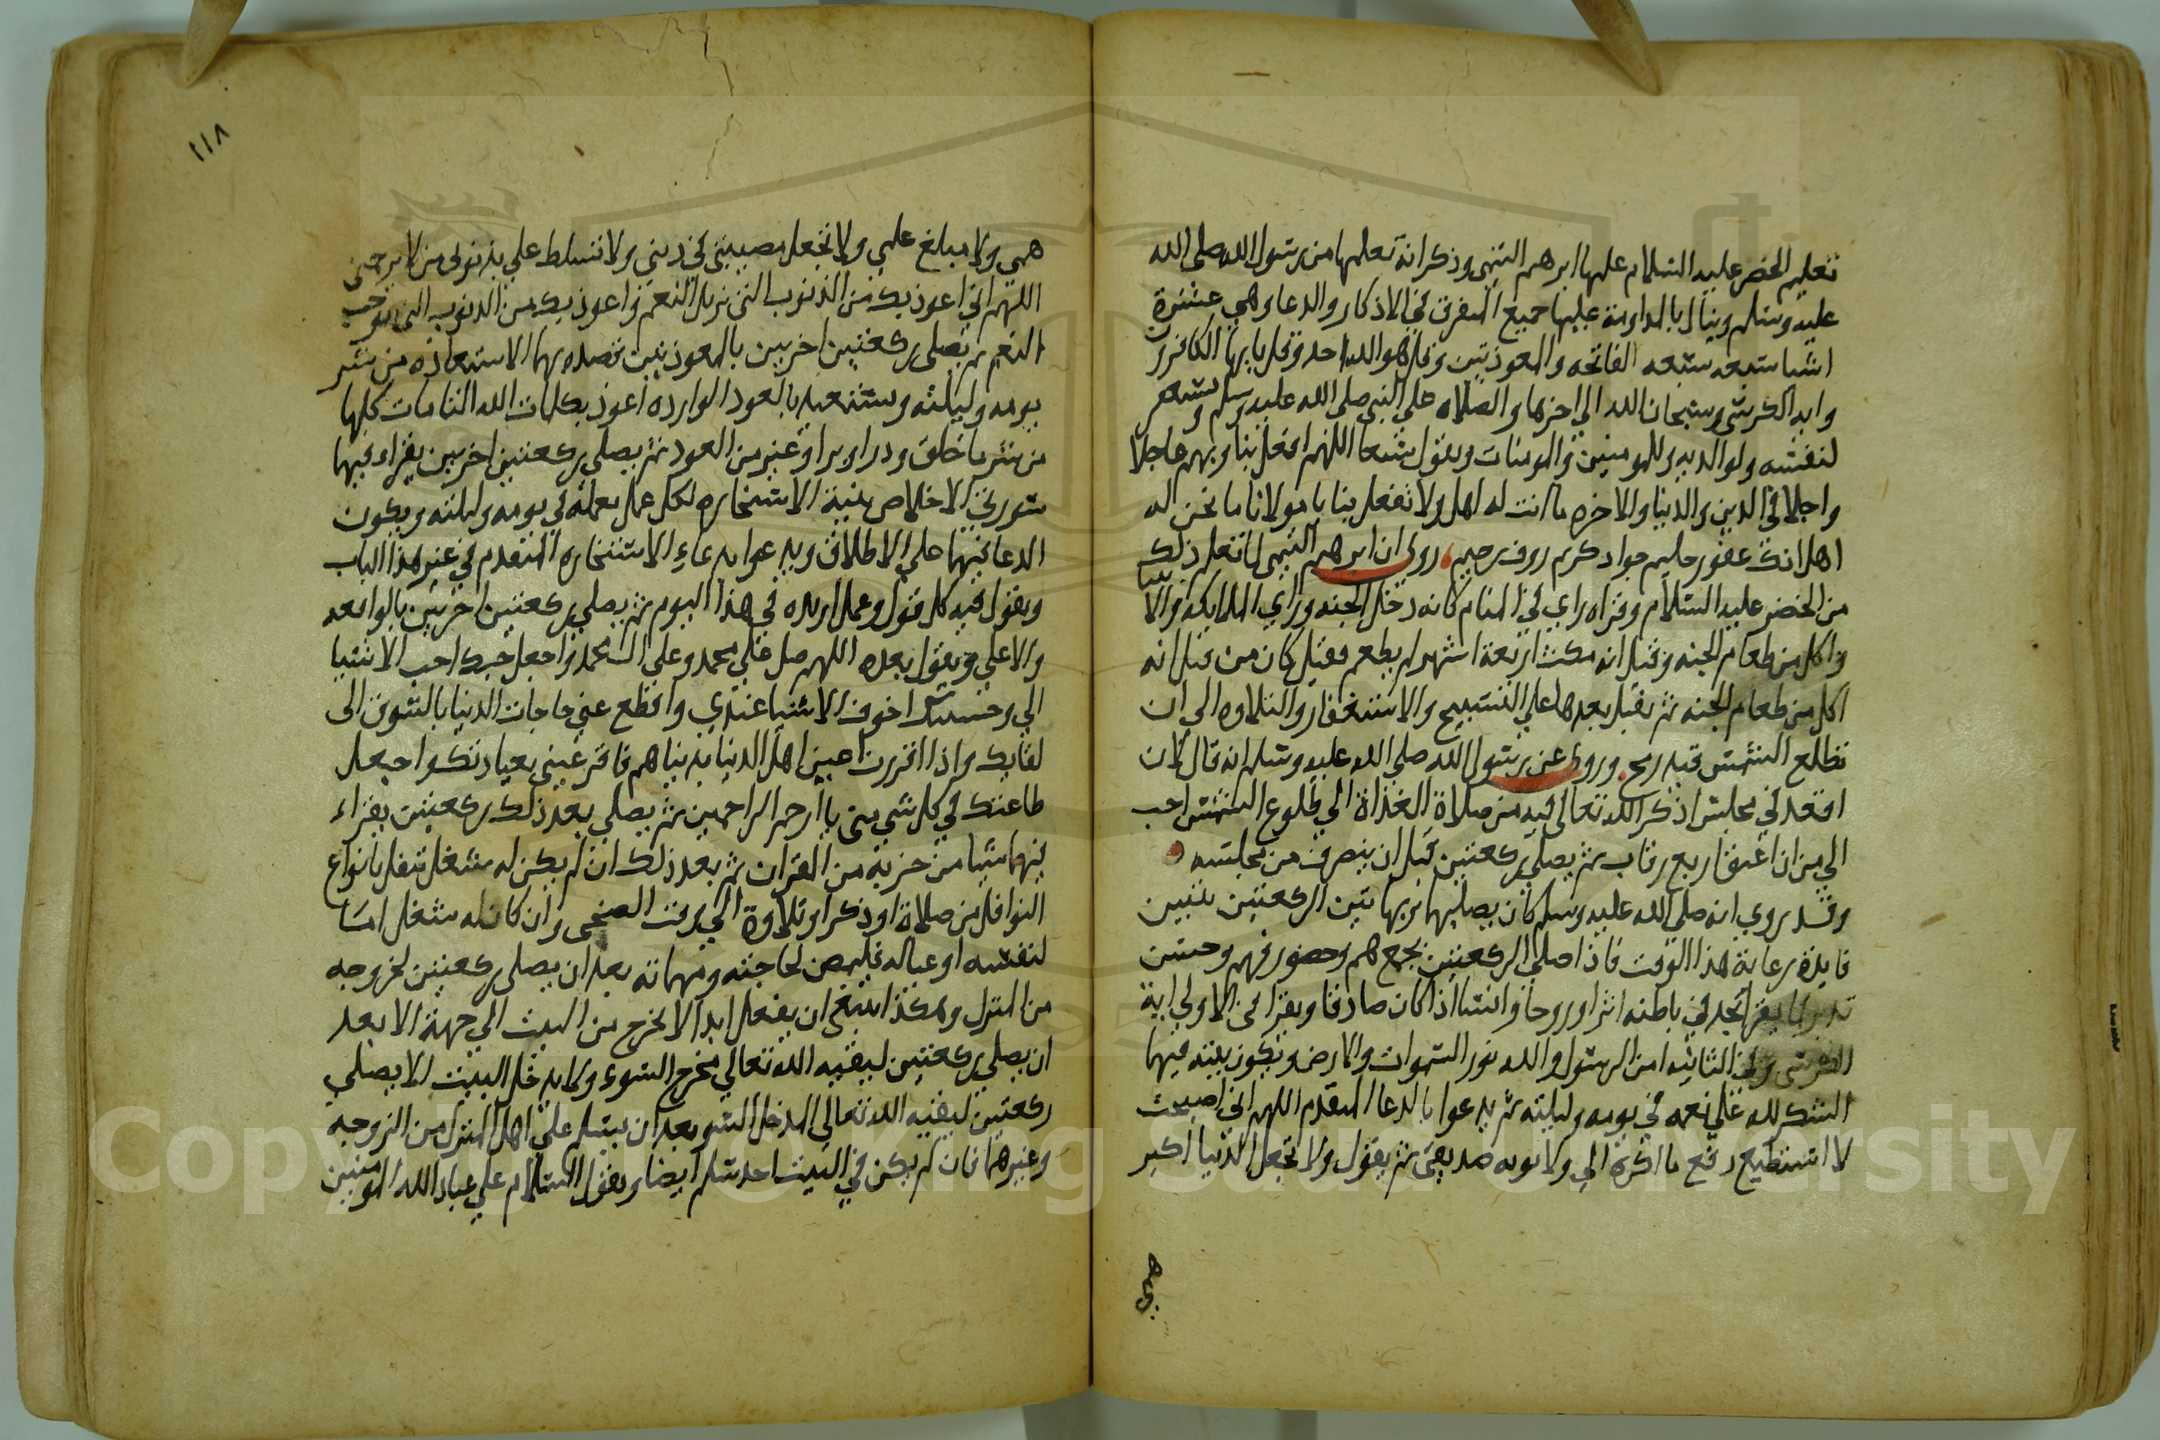 تعليم الخضر عليه السلام علمها ابرهيم التيمى وذكر انه تعلمها من رسول الله صلى الله
عليه وسلم وينال بالمداومة عليها جميع المفرق في الاذكار والدعا وهي عشرة
اشيا سبعه سبعه الفاتحه والمعوذتين وقل هو الله احد وقل يا ايها الكافرون
وايه الكرسي وسبحان الله الى اخرها والصلاه على النبي صلى الله عليه وسلم ويستغفر
لنفسه ولوالديه وللمومنين والمومنات ويقول سبعا اللهم افعل بنا وبهم عاجلا
واجلا في الدين والدنيا والاخره ما انت له اهل ولا تفعل بنا يا مولانا ما نحن له
اهل انك غفور حليم جواد كريم روف رحيم روى ان ابرهيم التيمى لما تعلم ذلك
من الخضر عليه السلام وقراه راي في المنام كانه دخل الجنه وراي الملايكه والانبيا
واكل من طعام الجنه وقيل انه مكث اربعة اشهر لم يطعم فقيل كان من قبل انه
اكل من طعام الجنه ثم يقبل بعدها على التسبيح والاستغفار والتلاوه الى ان
تطلع الشمس قيد رمح وروى عن رسول الله صلى الله عليه وسلم انه قال لان
اقعد في مجلس اذكر الله تعالى فيه من صلاة الغداة الى طلوع الشمس احب
الي من ان اعتق اربع رقاب ثم يصلي ركعتين قبل ان ينصرف من مجلسه
وقد روي انه صلى الله عليه وسلم كان يصليهما وبهاتين الركعتين تتبين
فايدة رعاية هذا الوقت فاذا صلى الركعتين بجمع هم وحضور فهم وحسن
تدبر لما يقرا يجد في باطنه اثرا وروحا وانسا اذا كان صادقا ويقرا في الاولى اية
الكرسي وفي الثانيه امن الرسول والله نور السموات والارض وتكون نيته فيهما
الشكر لله على نعمه في يومه وليلته ثم يدعوا بالدعا المتقدم اللهم اني اصبحت
لا استطيع دفع ما اكره الى ولا تويه صديقي ثم يقول ولا تجعل الدنيا اكبر
همي
٢١٨
همي ولا مبلغ علمي ولا تجعل مصيبتي في ديني ولا تسلط علي بذنوبى من لا يرحمني
اللهم اني اعوذ بك من الذنوب التي تزيل النعم واعوذ بك من الذنوب التي توجب
النقم ثم يصلى ركعتين اخريين بالمعوذتين قصده بهما الاستعاذه من شر
يومه وليلته ويستعيذ بالعوذ الوارده اعوذ بكلمات الله التامات كلها
من شر ما خلق وذرا وبرا وغير من العوذ ثم يصلي ركعتين اخريين يقراء فيهما
سورتي الاخلاص بنية الاستخاره لكل عمل يعمله في يومه وليلته ويكون
الدعا فيهما على الاطلاق ويدعوا بدعاء الاستخاره المتقدم في غير هذا الباب
ويقول فيه كل قول وعمل اريده في هذا اليوم ثم يصلي ركعتين اخريين بالواقعه
والاعلى ويقول بعده اللهم صل على محمد وعلى ال محمد واجعل حبك احب الاشيا
الي وخشيتك اخوف الاشيا عندي واقطع عني حاجات الدنيا بالشوق الى
لقايك واذا اقررت اعين اهل الدنيا بدنياهم فاقر عيني بعبادتك واجعل
طاعتك في كل شي مني يا ارحم الراحمين ثم يصلي بعد ذلك ركعتين يقراء
فيهما شيا من حزبه من القران ثم بعد ذلك ان لم يكن له شغل تنفل بانواع
النوافل من صلاة او ذكر او تلاوة الى وقت الضحى وان كان له شغل اما
لنفسه او عياله فليمض لحاجته ومهماته بعد ان يصلى ركعتين لخروجه
من المنزل وهكذا ينبغي ان يفعل ابدا لا يخرج من البيت الى جهة الا بعد
ان يصلي ركعتين ليقيه الله تعالى مخرج السوء ولا يدخل البيت الا يصلي
ركعتين ليقيه الله تعالى المدخل السو بعد ان يسلم على اهل المنزل من الزوجه
وغيرها فان لم يكن في البيت احد سلم ايضا ويقول السلام علي عباد الله المومنين
Copyright © King Saud University